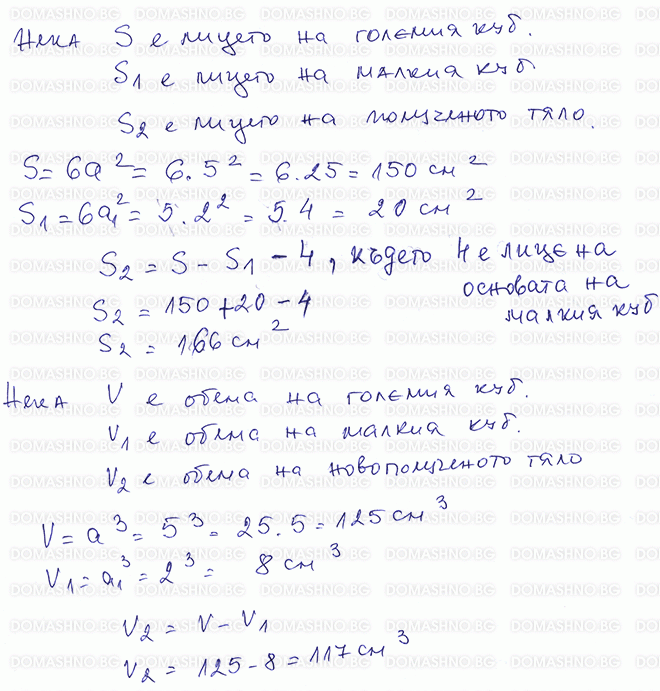 Нека S е лицето на големия куб.
S1 е лицето на малкия куб
S2 е лицето на полученото тяло.
S = 6a² = 6.5² = 6.25 = 150 см²
S1 = 6a1² = 5.2² = 5.4 = 20 см²
S2 = S - S1 - 4, където 4 е лице на
основата на
малкия куб
S2 = 150 + 20 - 4
S2 = 166 см²
Нека V е обема на големия куб.
V1 е обема на малкия куб.
V2 е обема на новополученото тяло
V = a³ = 5³ = 25.5 = 125 см³
V1 = a1³ = 2³ = 8 см³
V2 = V - V1
V2 = 125 - 8 = 117 см³
DOMASHNO.BG